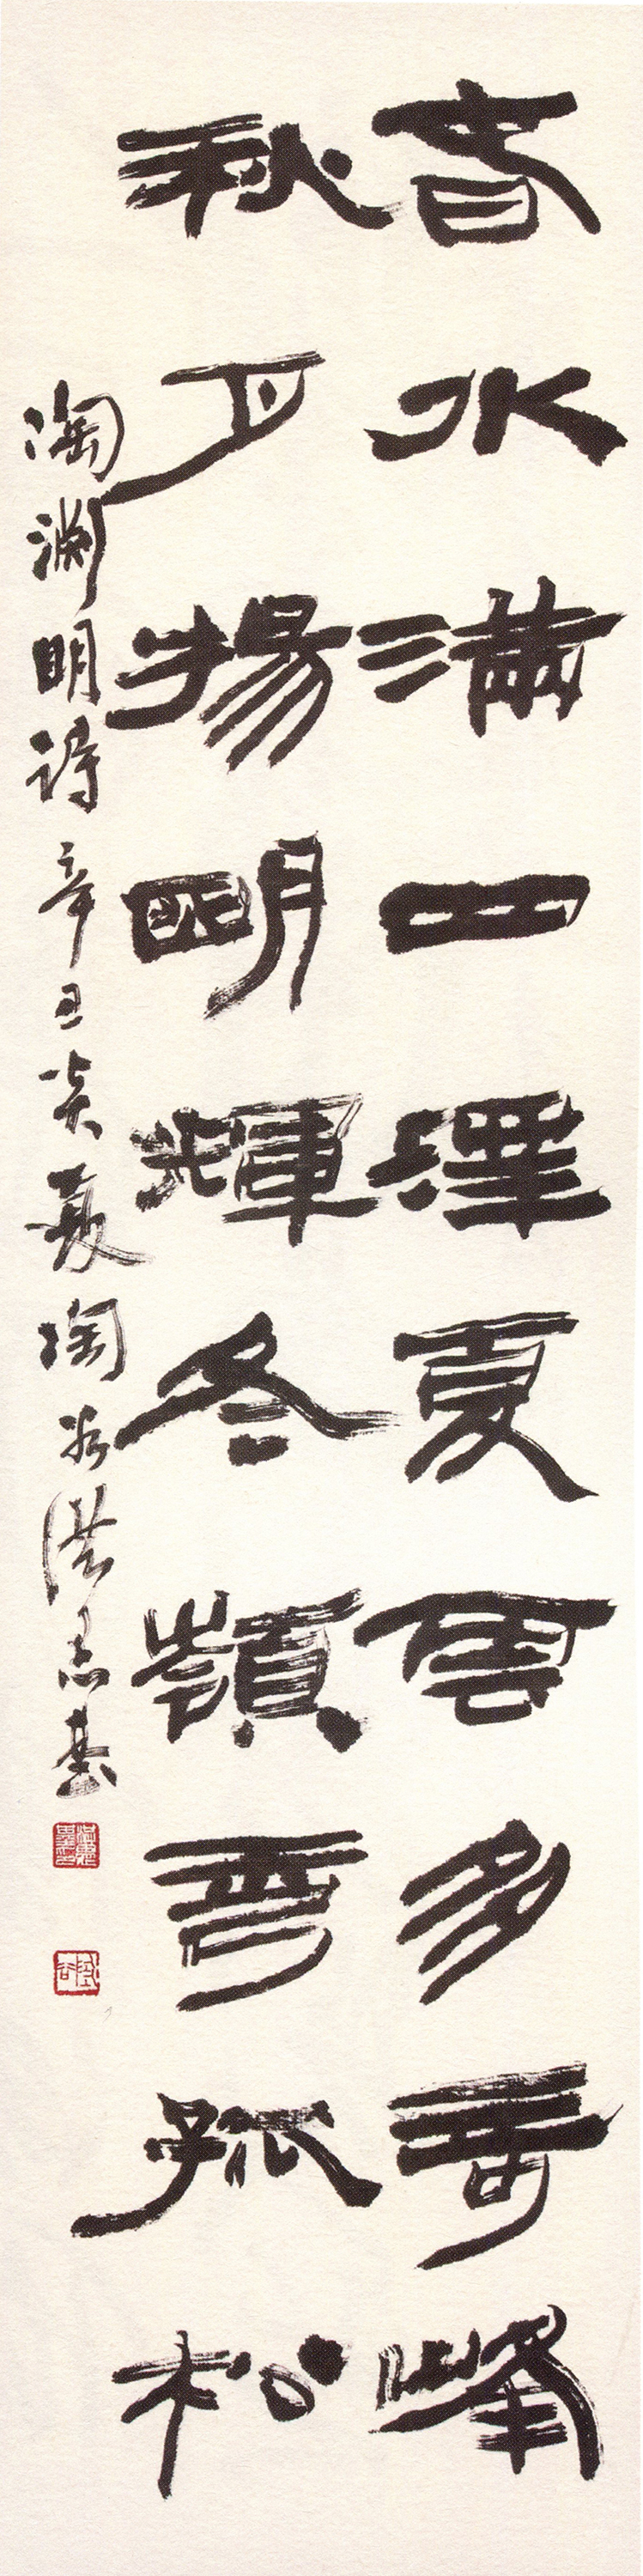 春水滿四澤夏雲多奇峰
秋月揚明輝冬嶺秀孤松
陶渊明诗辛丑炎夏陶洪志基